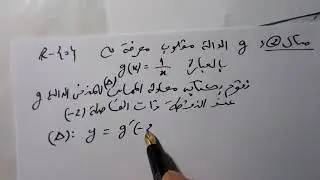 مثال②: g الدالة مقلوب معرفة على R-{0}
بالعبارة g(x) = 1/x
نقوم بحساب معادلة المماس (Δ) لمنحنى الدالة g
عند النقطة ذات الفاصلة (-2)
(Δ): y = g'(-2